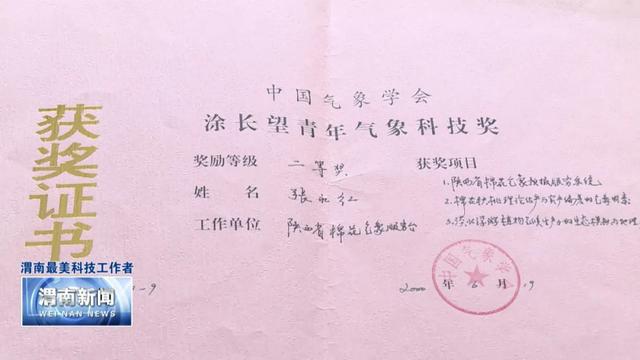 获奖证书
中国气象学会
涂长望青年气象科技奖
奖励等级 二等奖
姓名 张永红
工作单位 陕西省棉花气象服务台
获奖项目
1.陕西省棉花气象预报服务系统
2.棉花
3.
中国气象学会
2000年6月19
渭南最美科技工作者
渭南新闻
WEI NAN NEWS
-9